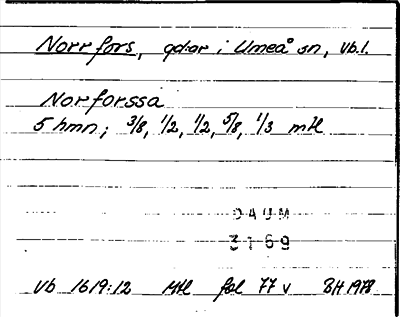 Norrfors, gdar i Umeå sn, Vb.l.
Norforssa
5 hmn; 3/8, 1/2, 1/2, 5/8, 1/3 mtl
DAUM
3169
Vb 1619:12 Mtl fol 77 v BH 1978